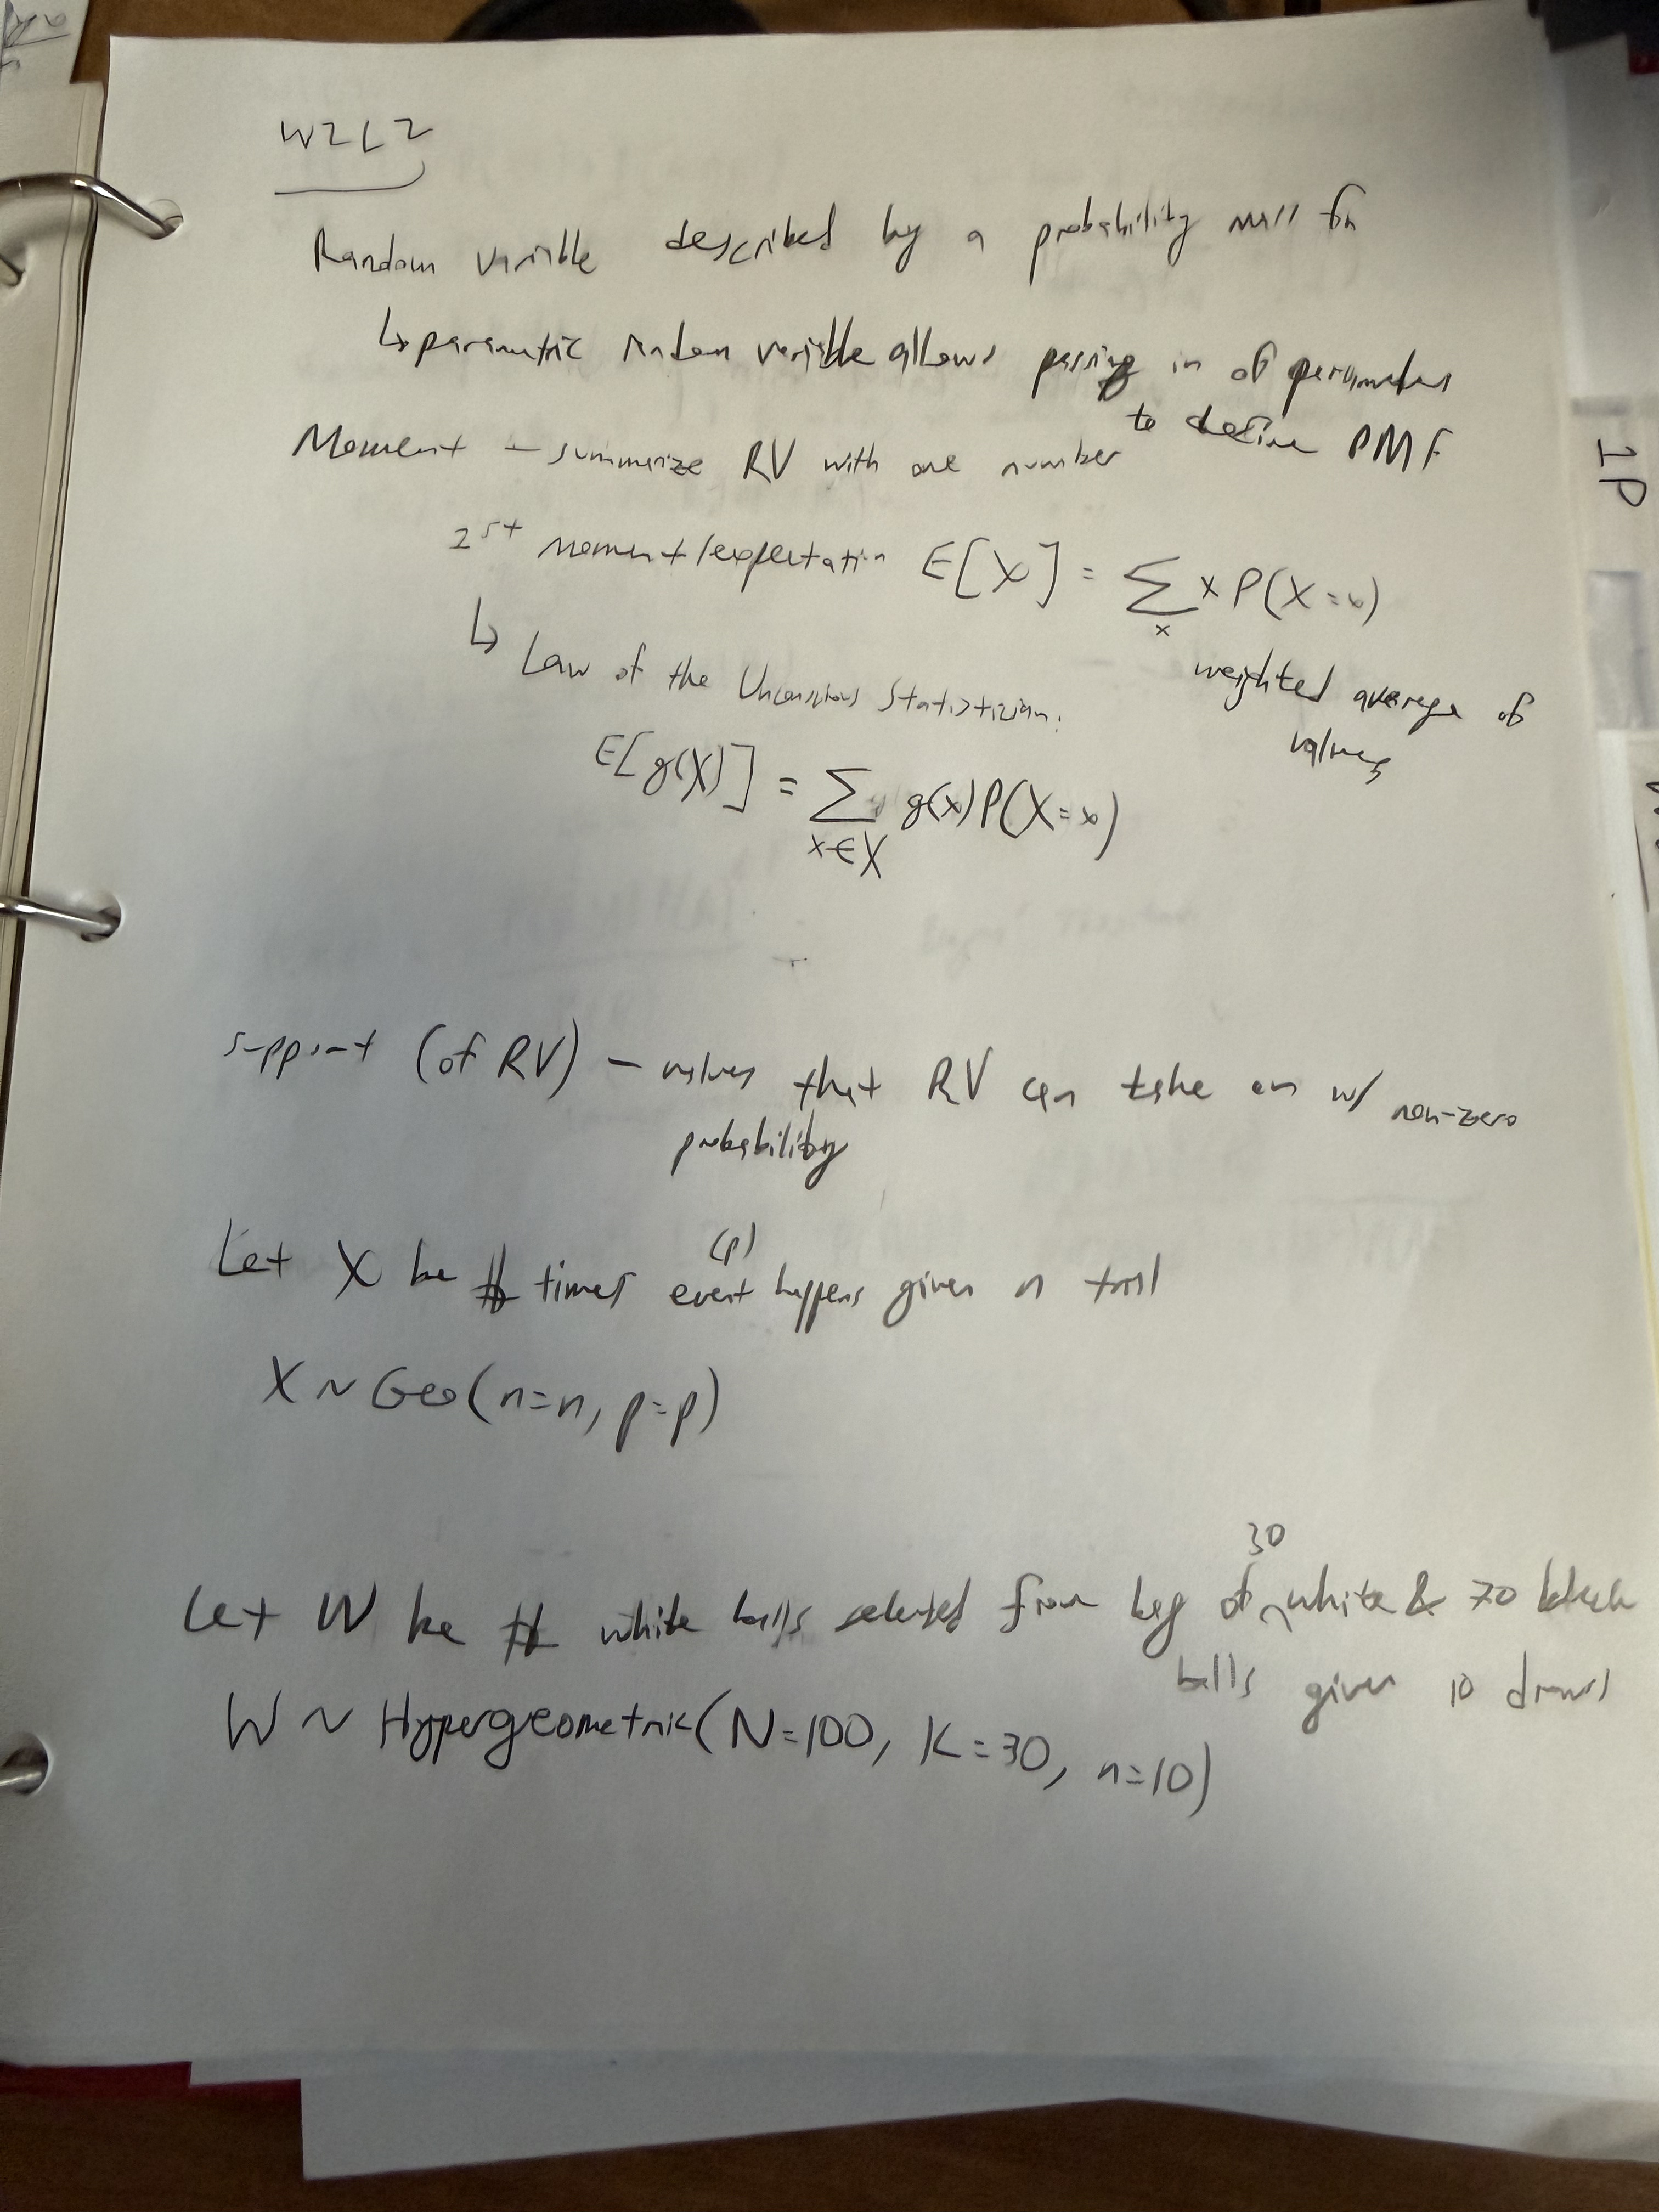 W2L2
Random variable described by a probability mass fn
↳ parametric random variable allows passing in of parameters
to define PMF
Moment – summarize RV with one number
1st moment/expectation E[X] = ∑ₓ x P(X=x)
weighted average of
values
↳ Law of the Unconscious Statistician:
E[g(X)] = ∑ g(x)P(X=x)
x∈X
support (of RV) – values that RV can take on w/ non-zero
probability
(p)
Let X be # times event happens given n trial
X ~ Geo(n=n, p=p)
30
Let W be # white balls selected from bag of ^ white & 70 black
balls given 10 draws
W ~ Hypergeometric(N=100, K=30, n=10)
1P